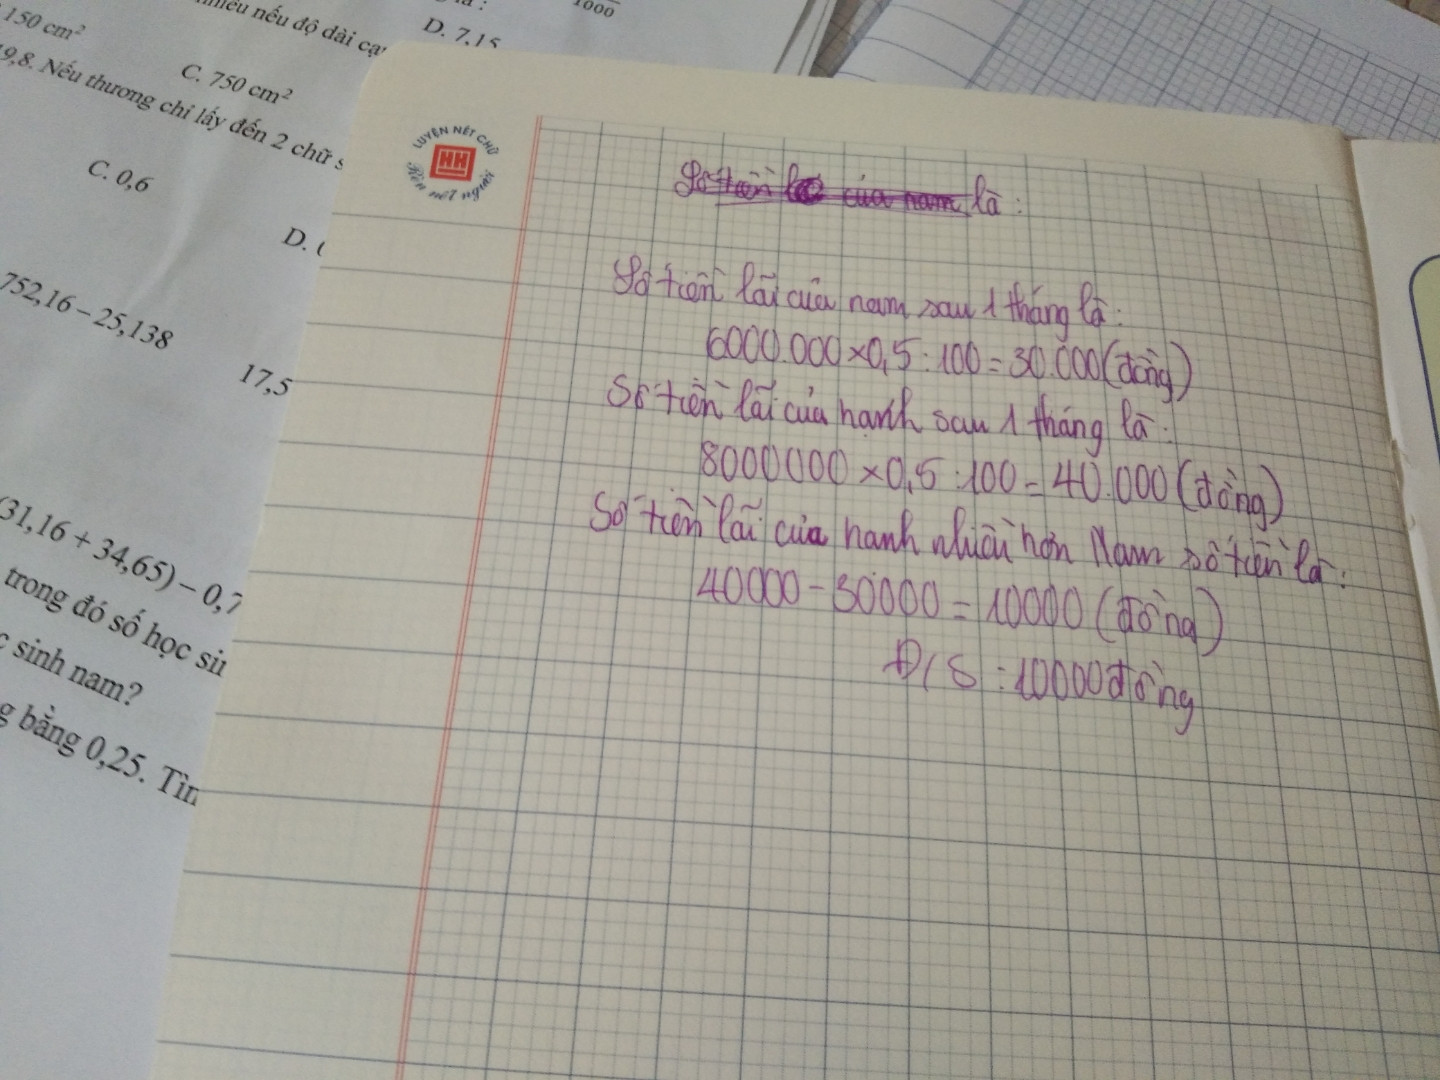 150 cm²
C. 750 cm²
nhiêu nếu độ dài cạ
D. 7,15
1000
9,8. Nếu thương chỉ lấy đến 2 chữ s
C. 0,6
D.
752,16 – 25,138
17,5
(31,16 + 34,65) – 0,7
trong đó số học sin
sinh nam?
g bằng 0,25. Tìn
LUYỆN NÉT CHỮ
HH
Rèn nết người
Số tiền của nam là :
Số tiền lãi của nam sau 1 tháng là :
6000.000 × 0,5 : 100 = 30.000 (đồng)
Số tiền lãi của hạnh sau 1 tháng là :
8000000 × 0,5 : 100 = 40.000 (đồng)
Số tiền lãi của hanh nhiều hơn Nam số tiền là :
40000 - 30000 = 10000 (đồng)
Đ/S : 10000 đồng